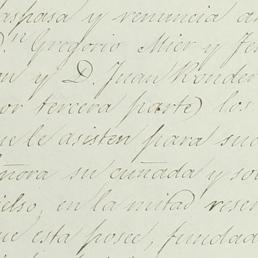 aspasa y renuncia a
D.n Gregorio Mier y Te
y D. Juan Ronder
or tercera parte) los
ue le asisten para suc
eñora su cuñada y so
ielso, en la mitad reser
ue esta posee, fundad